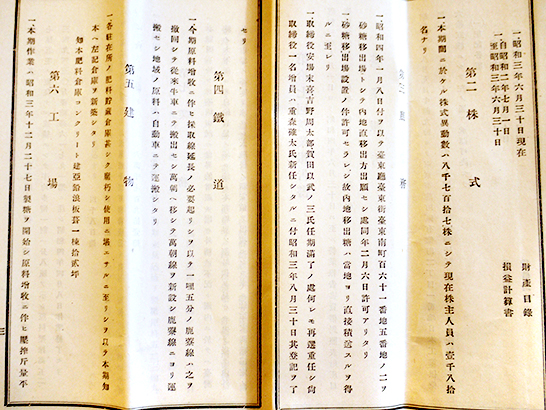 一、昭和三年六月三十日現在
一、自昭和二年七月一日
至昭和三年六月三十日
財産目錄
損益計算書
第二株式
一、本期間ニ於ケル株式異動數ハ八千七百拾七株ニシテ現在株主人員ハ壹千八拾
名ナリ
一、昭和四年一月八日付ヲ以テ臺東廳臺東街臺東南町百六十一番地五番地ノ二ヲ
砂糖移出場トシテ內地直移出方出願セシ處同年二月六日許可アリタリ
砂糖移出場設置ノ件許可セラレシ故內地移出糖ハ當地ヨリ直接積送スルヲ得
ルニ至レリ
一、取締役安場末喜吉野周太郎賀田以武ノ三氏任期滿了ノ處何レモ再選重任シ尙
取締役一名增員ハ重倉確太氏新任シタルニ付昭和三年八月三十日其登記ヲ了
セリ
第四鐵道
一、今期原料增收ニ伴ヒ採取線延長ノ必要起リシヲ以テ一哩五分ノ鹿寮線ハ之ヲ
撤回シテ從來牛車ニテ搬出セシ萬朝ヘ移シテ萬朝線ヲ新設シ鹿寮線ニヨリ運
搬セシ地域ノ原料ハ自動車ニテ運搬シタリ
第五建物
一、各駐在所ノ肥料貯藏倉庫甚シク腐朽シ使用ニ堪エザルニ至リシヲ以テ本期知
本ハ左記倉庫ヲ新築シタリ
知本肥料倉庫コンクリート建亞鉛浪板葺一棟拾貳坪
第六工場
一、本期作業ハ昭和三年十二月二十七日製糖ヲ開始シ原料增收ニ伴ヒ壓搾斤量平
三